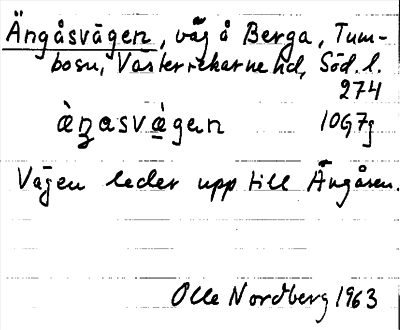 Ängåsvägen, väg å Berga, Tum-
bosn, Västerrekarne hd, Söd. l.
274
ànasvàgen 10G7g
Vägen leder upp till Ängåsen.
Olle Nordberg 1963